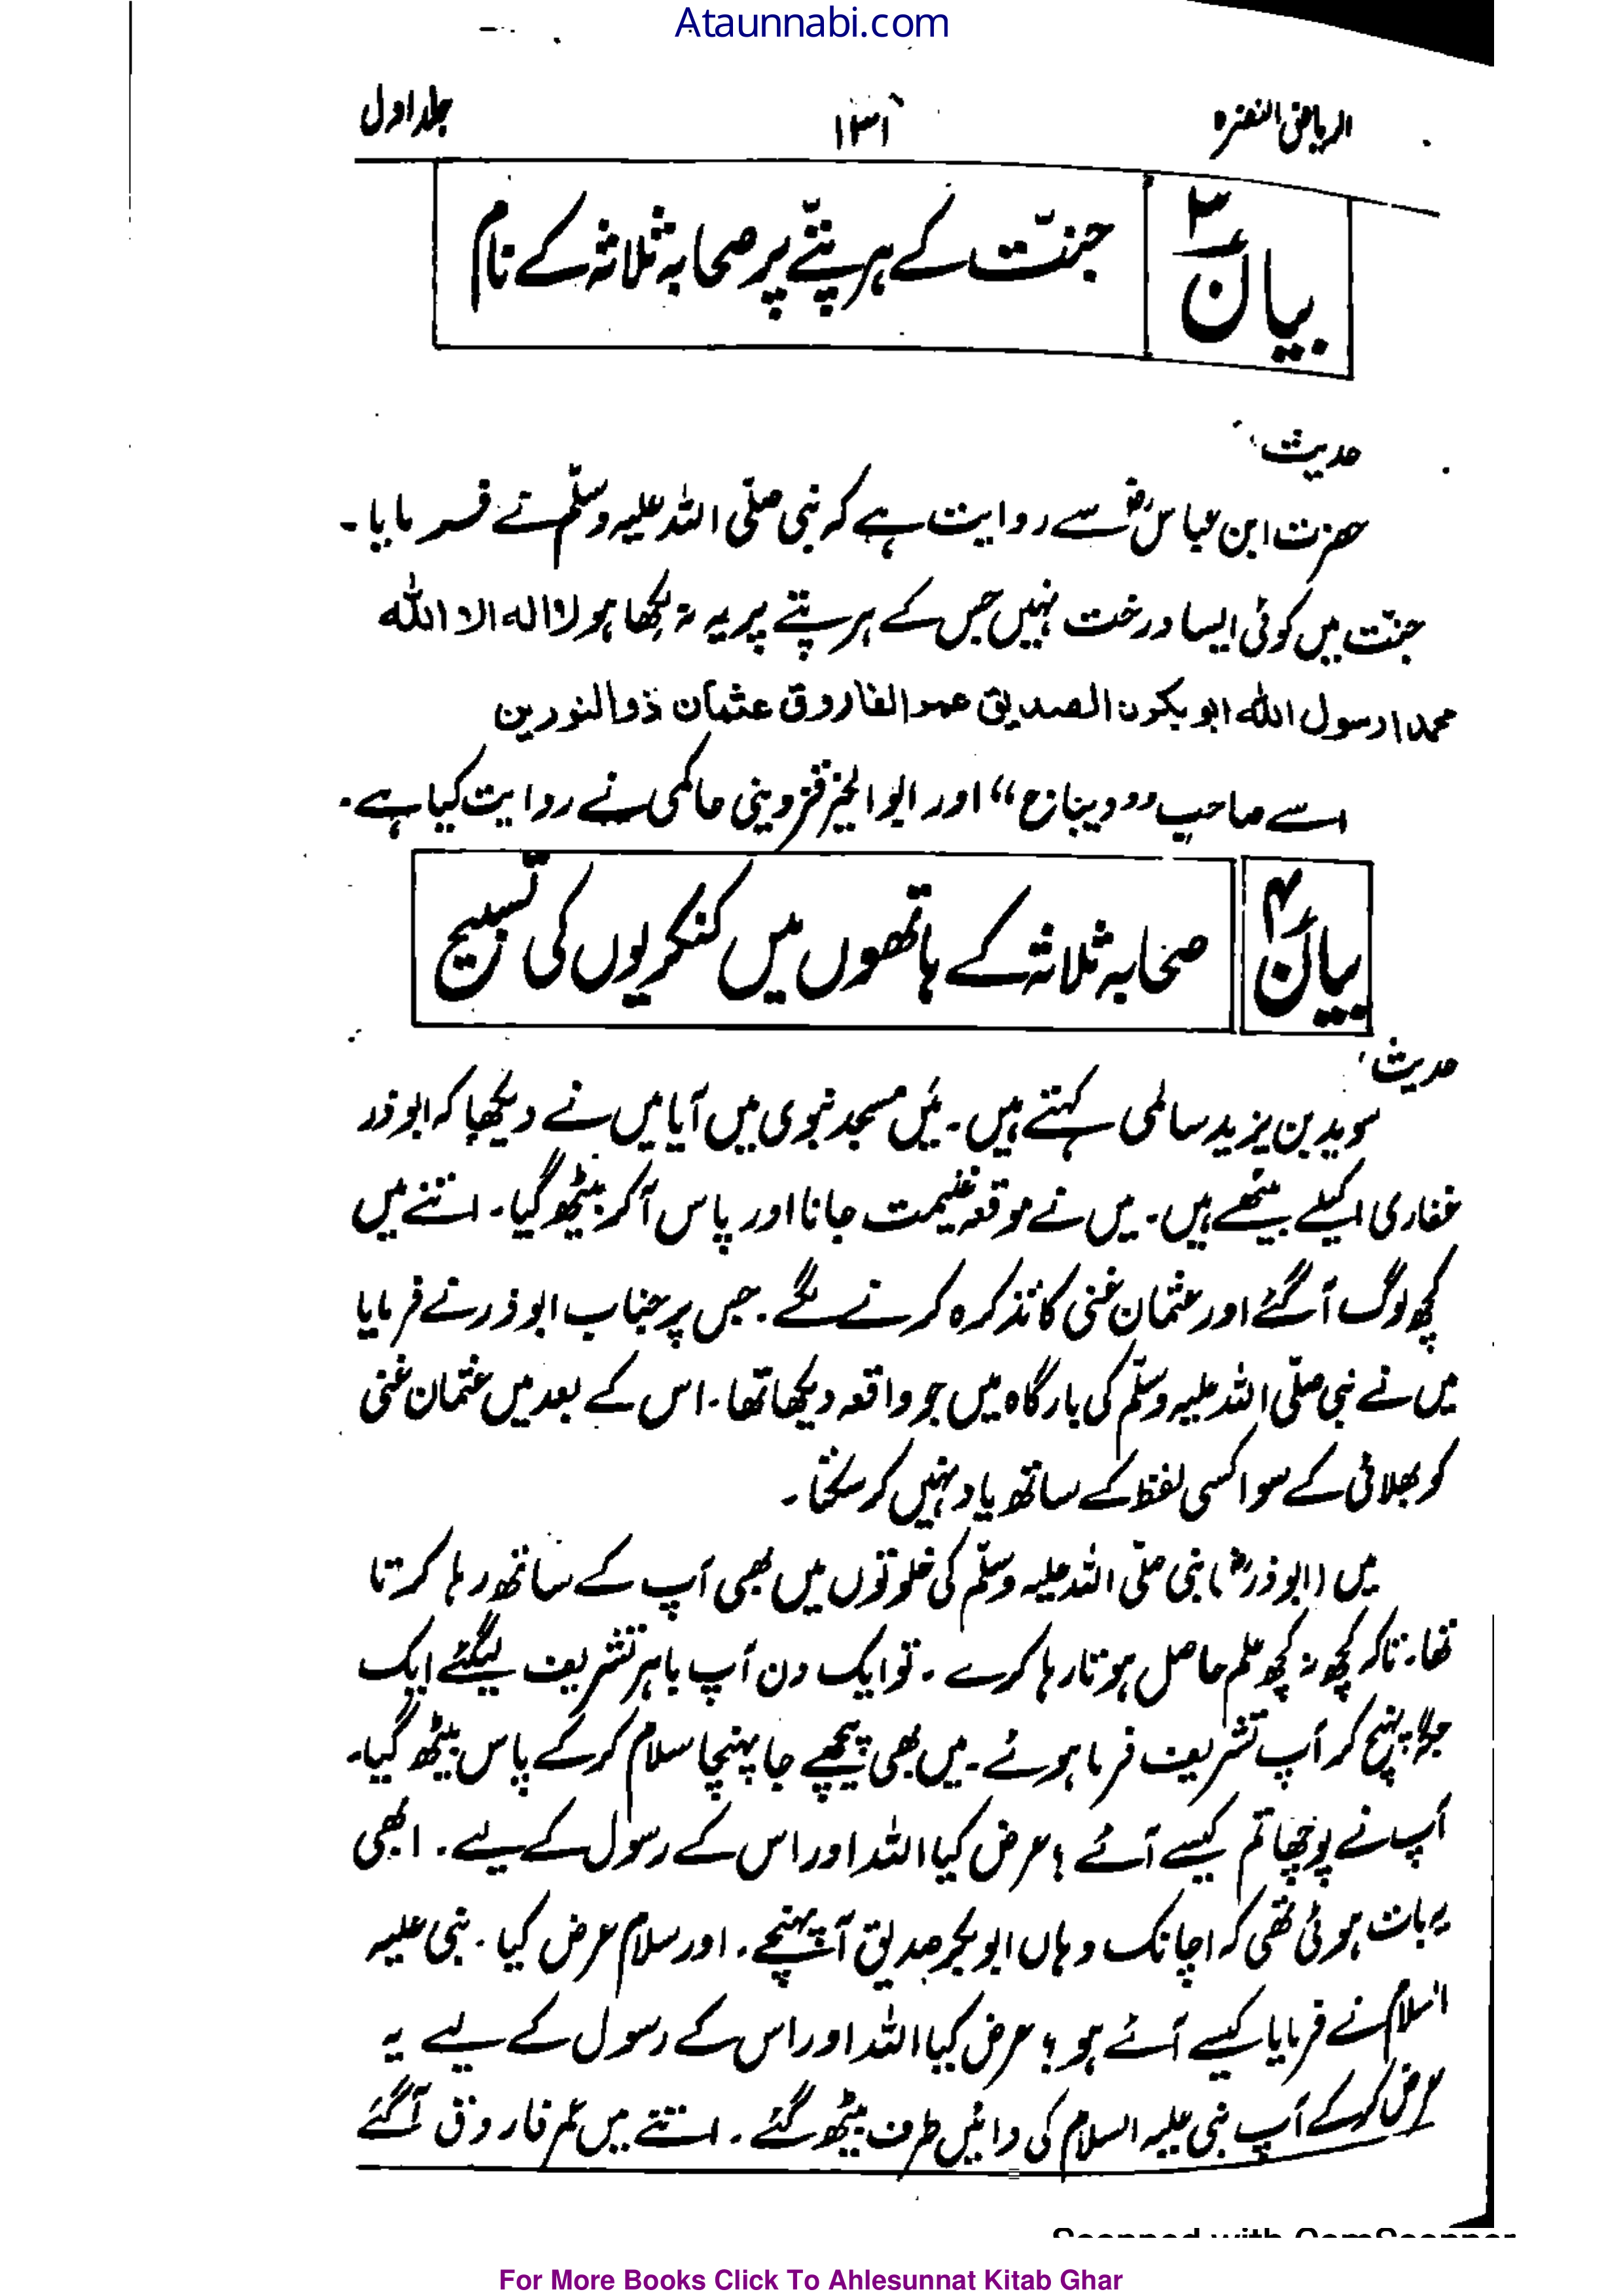 Ataunnabi.com
الریاض النضرہ ۱۳۱ جلد اول
بیان ۳ جنّت کے ہر پتّے پر صحابہ ثلاثہ کے نام
حدیث
حضرت ابن عباسؓ سے روایت ہے کہ نبی صلّی اللہ علیہ وسلّم نے فرمایا۔
جنّت میں کوئی ایسا درخت نہیں جس کے ہر پتے پر یہ نہ لکھا ہو لا الہ الا اللہ
محمد رسول اللہ ابو بکرن الصدیق عمر الفاروق عثمان ذوالنورین
اسے صاحبِ ’’دیباج‘‘ اور ابوالخیر قزوینی حاکمی نے روایت کیا ہے۔
بیان ۴ صحابہ ثلاثہ کے ہاتھوں میں کنکریوں کی تسبیح
حدیث
سوید بن یزید سالمی کہتے ہیں۔ میں مسجد نبوی میں آیا میں نے دیکھا کہ ابو ذر
غفاری اکیلے بیٹھے ہیں۔ میں نے موقعہ غنیمت جانا اور پاس آکر بیٹھ گیا۔ اتنے میں
کچھ لوگ آگئے اور عثمان غنی کا تذکرہ کرنے لگے۔ جس پر جناب ابو ذر نے فرمایا
میں نے نبی صلّی اللہ علیہ وسلّم کی بارگاہ میں جو واقعہ دیکھا تھا۔ اس کے بعد میں عثمان غنی
کو بھلائی کے سوا کسی لفظ کے ساتھ یاد نہیں کر سکتا۔
میں (ابوذرؓ) نبی صلّی اللہ علیہ وسلّم کی خلوتوں میں بھی آپ کے ساتھ رہا کرتا
تھا۔ تاکہ کچھ نہ کچھ علم حاصل ہوتا رہا کرے۔ تو ایک دن آپ باہر تشریف لیگئے ایک
جگہ پہنچ کر آپ تشریف فرما ہوئے۔ میں بھی پیچھے جا پہنچا سلام کرکے پاس بیٹھ گیا۔
آپ نے پوچھا تم کیسے آئے؟ عرض کیا اللہ اور اس کے رسول کے لیے۔ ابھی
یہ بات ہوئی تھی کہ اچانک وہاں ابو بکر صدیق آپہنچے۔ اور سلام عرض کیا۔ نبی علیہ
السلام نے فرمایا کیسے آئے ہو؟ عرض کیا اللہ اور اس کے رسول کے لیے یہ
عرض کرکے آپ نبی علیہ السلام کی دائیں طرف بیٹھ گئے۔ اتنے میں عمر فاروق آگئے
Scanned with CamScanner
For More Books Click To Ahlesunnat Kitab Ghar